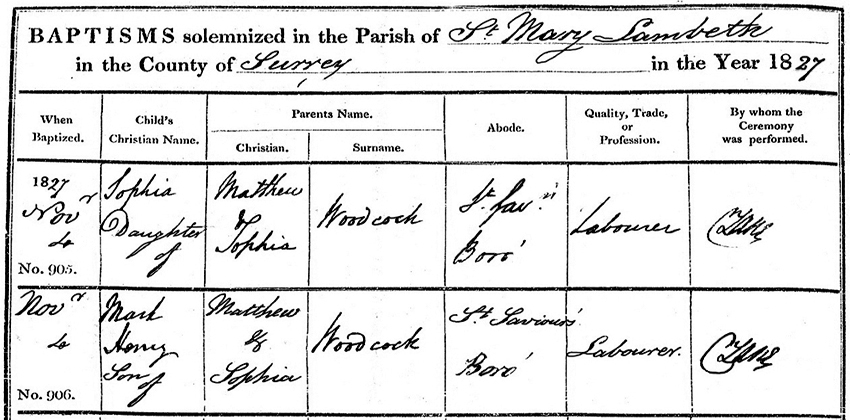 BAPTISMS solemnized in the Parish of St Mary Lambeth
in the County of Surrey in the Year 1827
When Baptized.
Child's Christian Name.
Parents Name.
Christian.
Surname.
Abode.
Quality, Trade, or Profession.
By whom the Ceremony was performed.
1827
Novr
4
No. 905.
Sophia
Daughter
of
Matthew
&
Sophia
Woodcock
St Savrs
Boro'
Labourer
Novr
4
No. 906.
Mark
Henry
Son of
Matthew
&
Sophia
Woodcock
St Saviours
Boro'
Labourer.